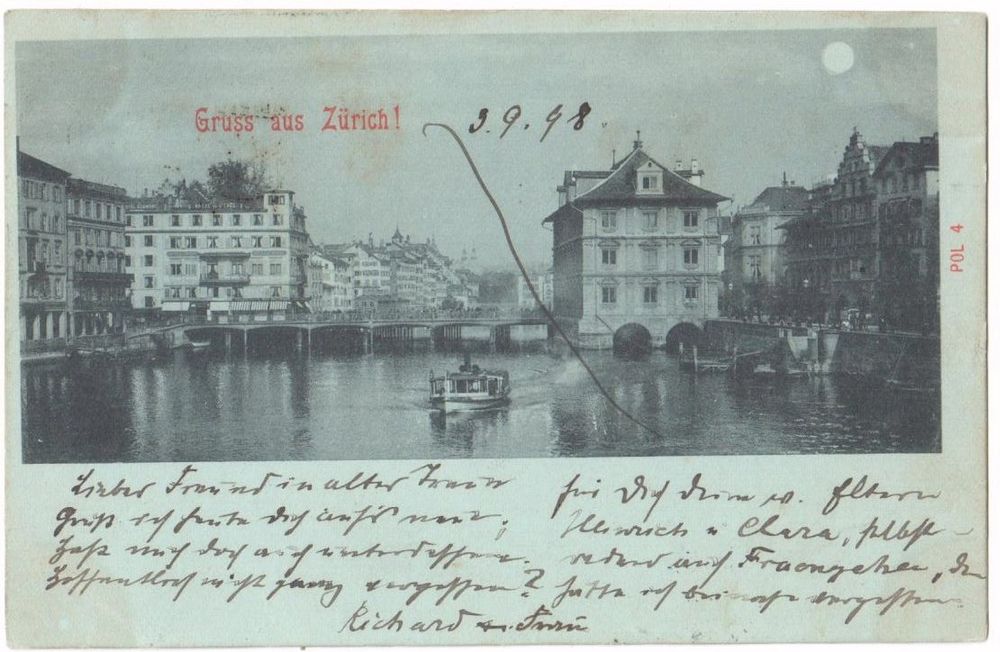 Gruss aus Zürich!
3.9.98
POL 4
Lieber Freund in alter Treue
Grüß ich heute dich aufs neue,
Hast mich doch auch unterdessen
Hoffentlich nicht ganz vergessen?
für Dich deine w. Eltern
Heinrich u Clara, selbst-
redend auch Fraungehen, den
hätte ich beinahe vergessen
Richard u. Frau